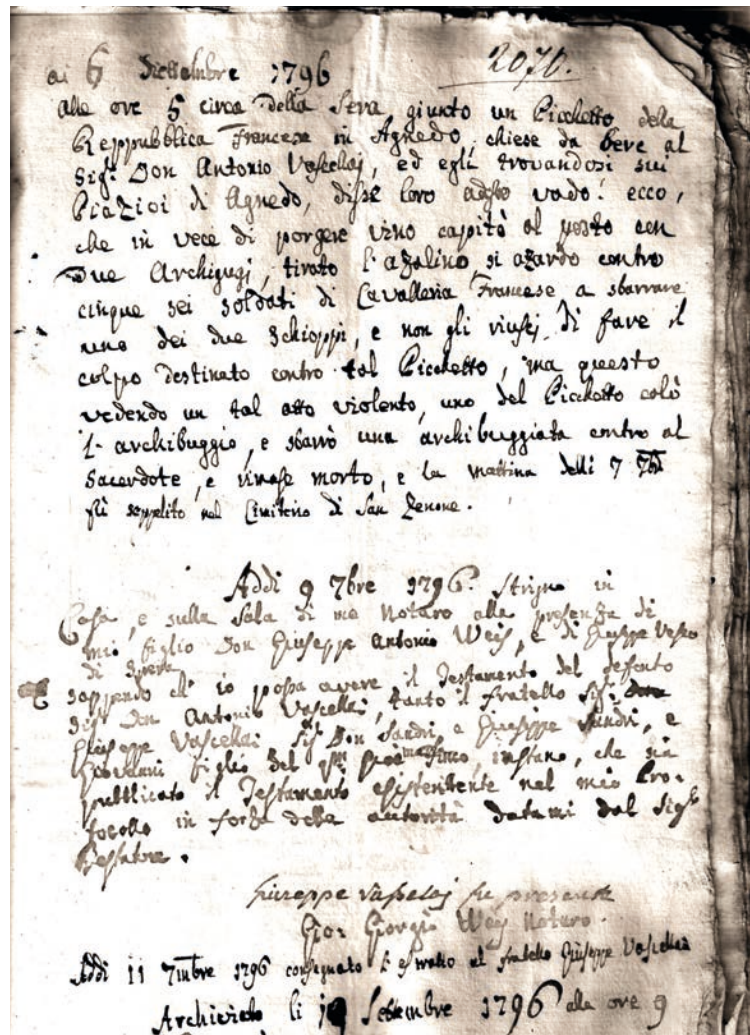 2070.
ai 6 Settembre 1796
alle ore 5 circa della Sera giunto un Picchetto della
Reppubblica Francese in Agnedo, chiese da bere al
Sigr. Don Antonio Vascellai, ed egli trovandosi sui
Piazioi di Agnedo, disse loro adesso vado: ecco,
che in vece di porgere vino capitò al posto con
due Archigugi, tirato l'azalino, si azardo contro
cinque sei soldati di Cavalleria Francese a sbarrare
uno dei due Schioppi, e non gli riusci di fare il
colpo destinato contro tal Picchetto, ma questo
vedendo un tal atto violento, uno del Picchetto calò
l'archibuggio, e sbarrò una archibuggiata contro al
Sacerdote, e rimase morto, e la mattina delli 7 7bre
fù seppelito nel Cimiterio di San Zenone.
Addi 9 7bre 1796. Strigno in
Casa, e sulla Sala di me Notaro alla presenza di
mio figlio Don Giuseppe Antonio Weis, e di Giuseppe
di
sappendo ch'io possa avere il Testamento del defonto
Sigr. Don Antonio Vascellai, tanto il fratello Sigr.
Giuseppe Vascellai Sigr. Don Sandri, e Giuseppe Sandri, e
Giovanni figlio del instano, che sia
pubblicato il Testamento esistente nel mio Pro-
tocollo in forza della autorità datami dal Sigr.
Testatore.
Giuseppe Vasselai fu presente
Gio: Giorgio Weis Notaro.
Addi 11 7mbre 1796 consegnato l'estratto al fratello Giuseppe Vascellai
Archiviato li Settembre 1796 alle ore 9